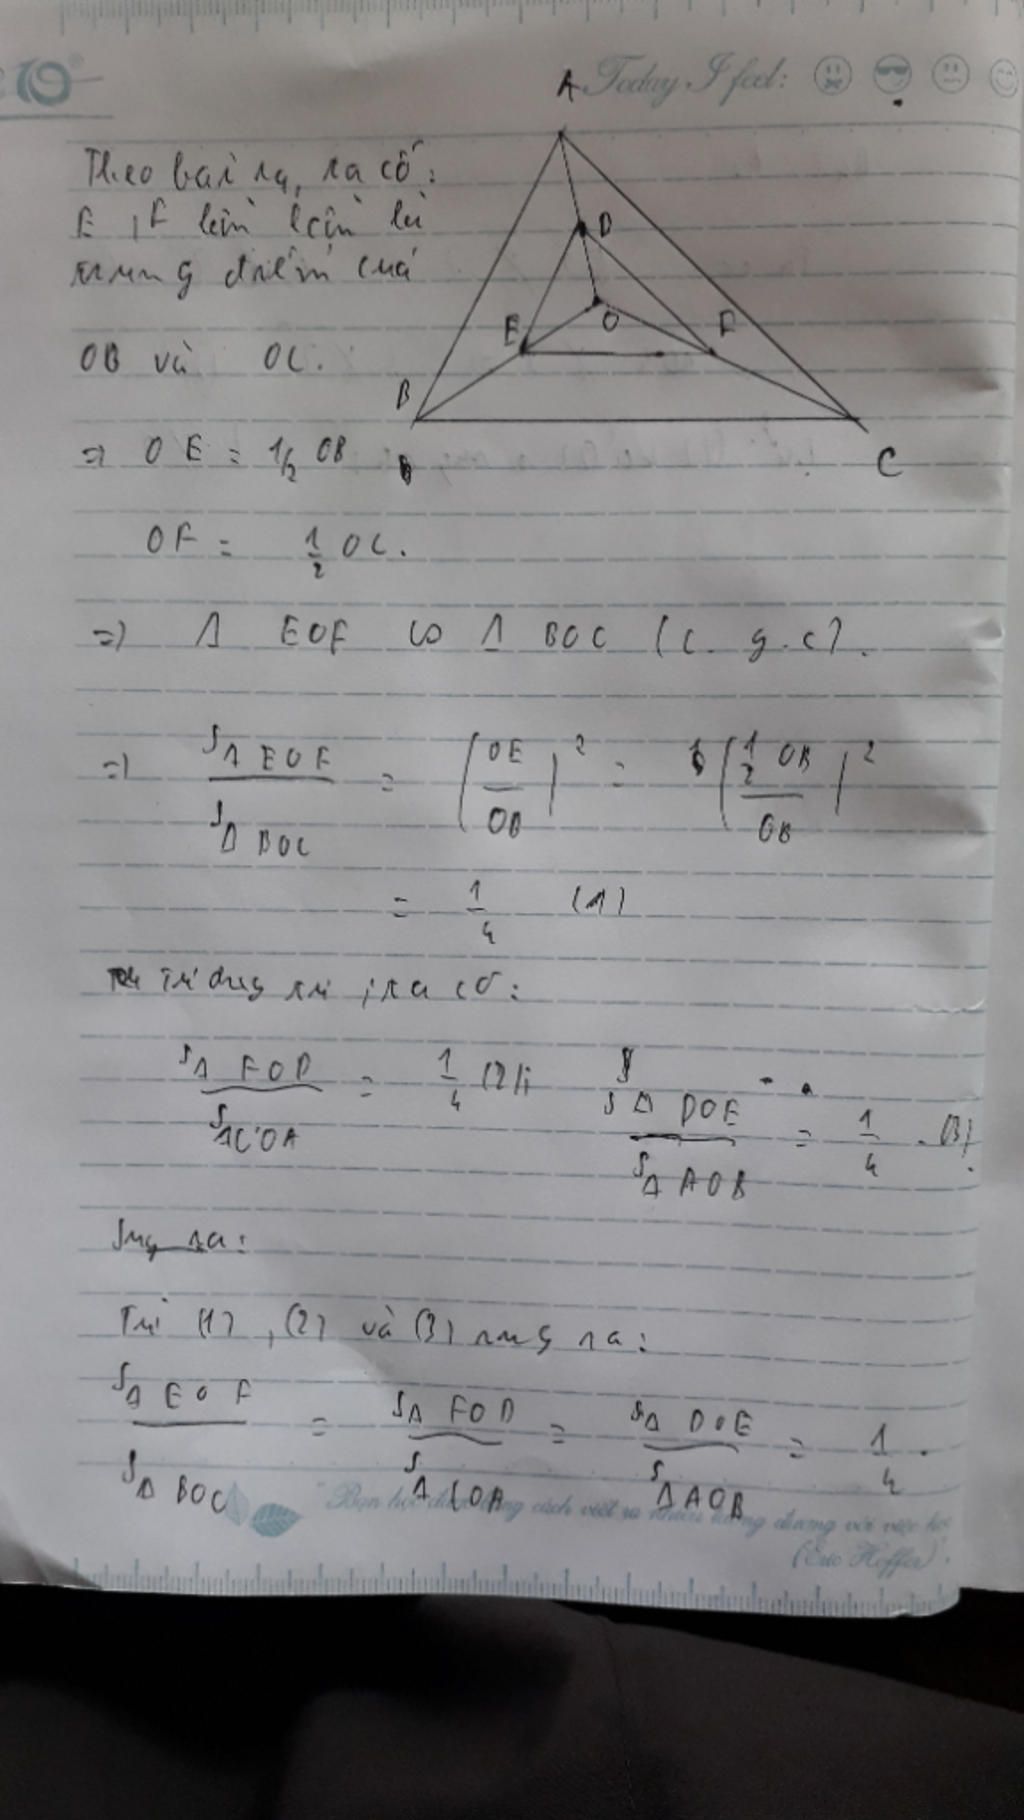 Today I feel:
A
Theo bài ra, ta có:
E, F lần lượt là
trung điểm của
OB và OC.
D
E
O
F
B
C
=> OE = 1/2 OB
OF = 1/2 OC.
=> Δ EOF ∽ Δ BOC (c.g.c).
=> SΔ EOF / SΔ BOC = (OE / OB)² = (1/2 OB / OB)²
= 1/4 (1)
Tương tự, ta có:
SΔ FOD / SΔ COA = 1/4 (2); SΔ DOE / SΔ AOB = 1/4 . (3).
Suy ra:
Từ (1), (2) và (3) suy ra:
SΔ EOF / SΔ BOC = SΔ FOD / SΔ COA = SΔ DOE / SΔ AOB = 1/4 .
"Bạn học được bằng cách viết ra nhiều tương đương với việc học
(Eric Hoffer).